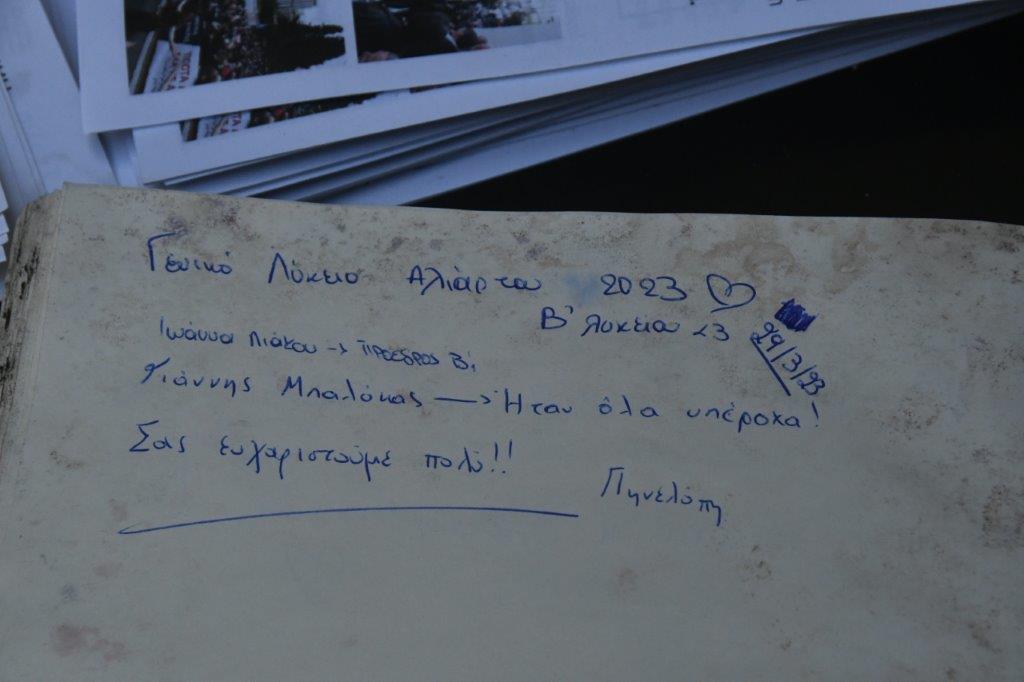 Γενικό Λύκειο Αλιάρτου 2023 ♡
Β' Λυκείου <3
29/3/23
Ιωάννα Λιάκου -> Πρόεδρος Β'
Γιάννης Μπαλόκας —> Ήταν όλα υπέροχα!
Σας ευχαριστούμε πολύ!!
Πηνελόπη